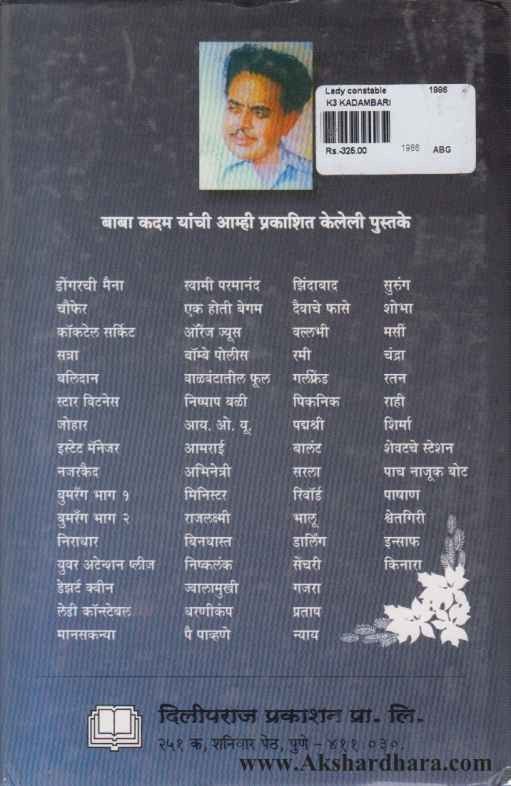 Lady constable 1986
K3 KADAMBARI
Rs.-325.00 1986 ABG
बाबा कदम यांची आम्ही प्रकाशित केलेली पुस्तके
डोंगरची मैना
चौफेर
कॉकटेल सर्किट
सत्रा
बलिदान
स्टार विटनेस
जोहार
इस्टेट मॅनेजर
नजरकैद
बुमरँग भाग १
बुमरँग भाग २
निराधार
युवर अटेन्शन प्लीज
डेझर्ट क्वीन
लेडी कॉन्स्टेबल
मानसकन्या
स्वामी परमानंद
एक होती बेगम
ऑरेंज ज्यूस
बॉम्बे पोलीस
वाळवंटातील फूल
निष्पाप बळी
आय. ओ. यू.
आमराई
अभिनेत्री
मिनिस्टर
राजलक्ष्मी
बिनधास्त
निष्कलंक
ज्वालामुखी
धरणीकंप
पै पाव्हणे
झिंदाबाद
दैवाचे फासे
वल्लभी
रमी
गर्लफ्रेंड
पिकनिक
पद्मश्री
बालंट
सरला
रिवॉर्ड
भालू
डार्लिंग
सेंचरी
गजरा
प्रताप
न्याय
सुरुंग
शोभा
मर्सी
चंद्रा
रतन
राही
शिर्मा
शेवटचे स्टेशन
पाच नाजूक बोट
पाषाण
श्वेतगिरी
इन्साफ
किनारा
दिलीपराज प्रकाशन प्रा. लि.
२५१ क, शनिवार पेठ, पुणे - ४११ ०३०.
www.Akshardhara.com